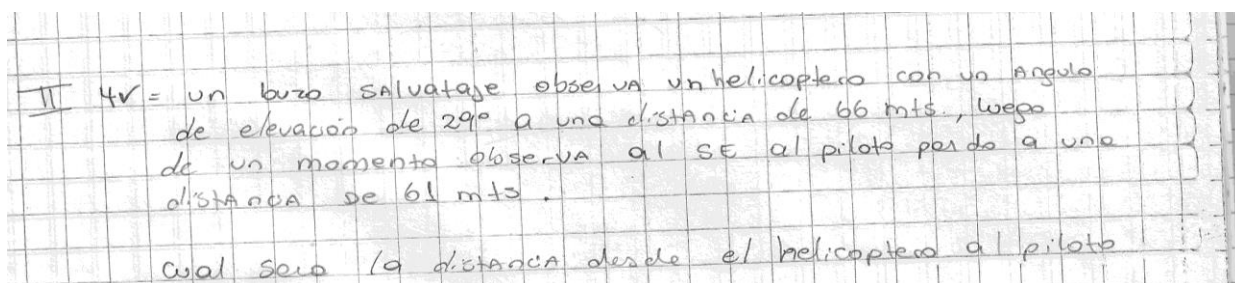 II 4V = un buzo SAlvataje observA un helicoptero con un Angulo
de elevación de 29º a una distAncia de 66 mts., luego
de un momento observA al SE al piloto pardo a una
distAncia De 61 mts.
cual sera la distAnciA desde el helicoptero al piloto